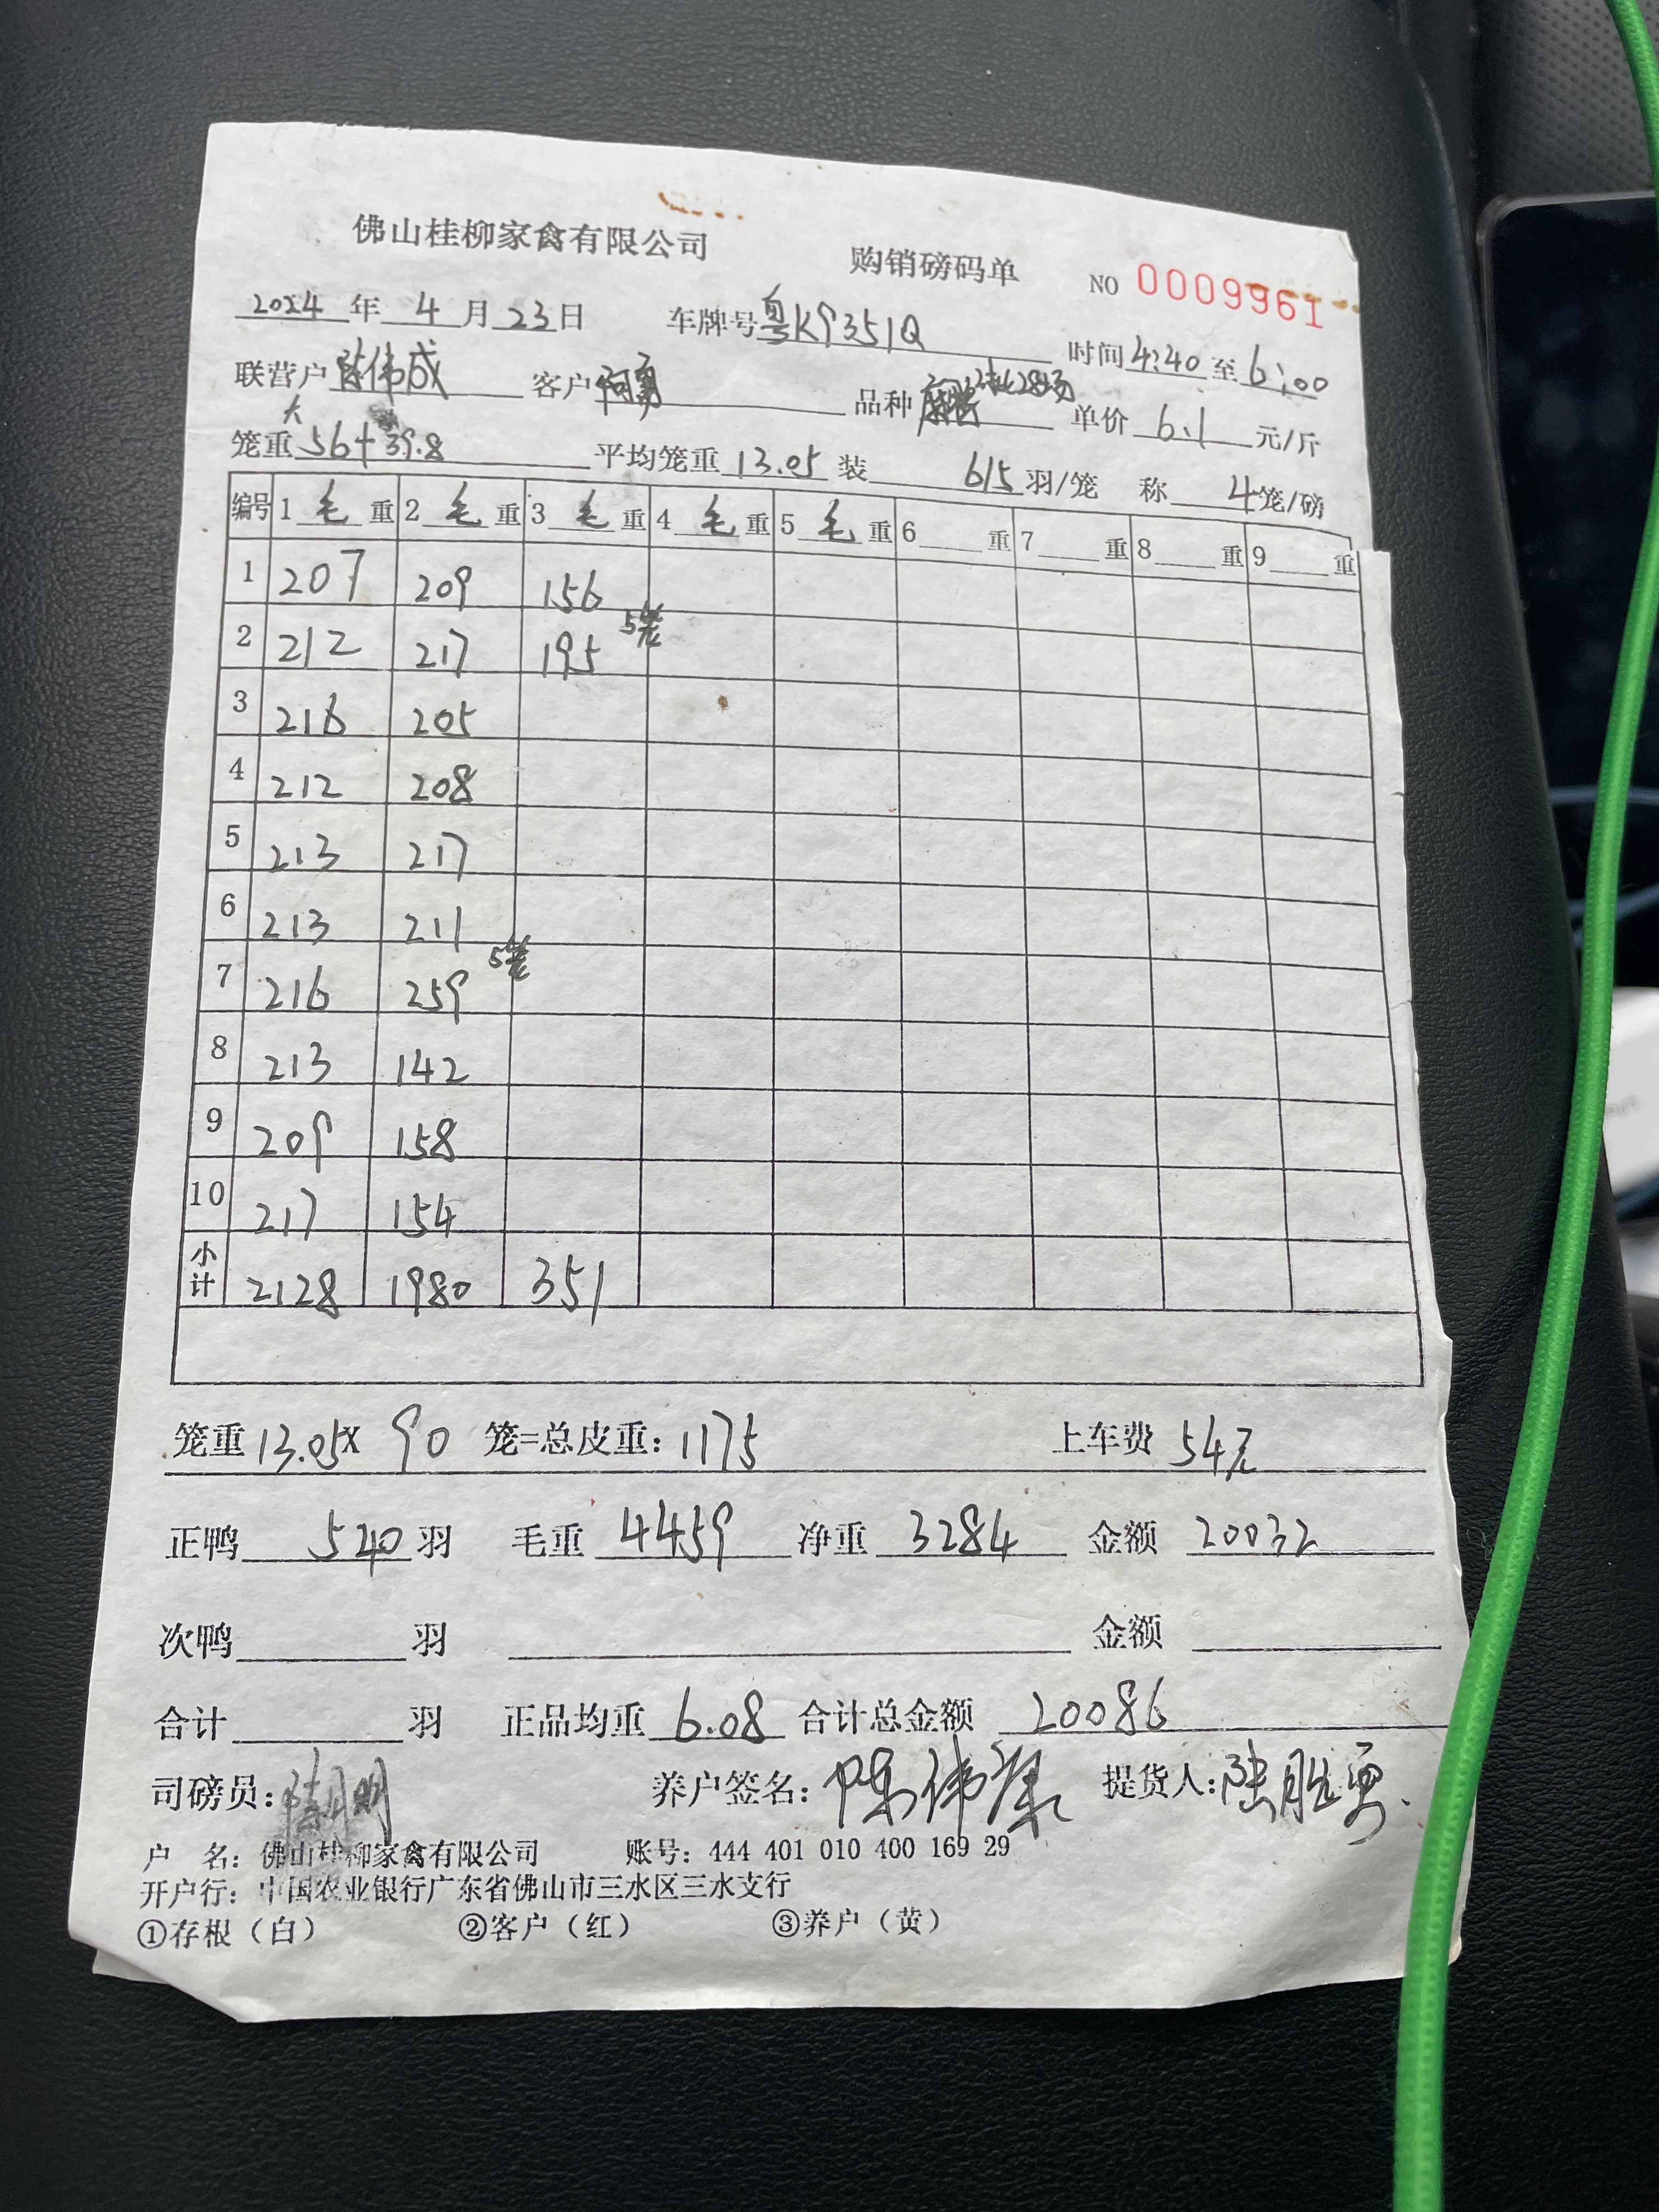 佛山桂柳家禽有限公司 购销磅码单 NO 0009961
2024年4月23日 车牌号粤K9351Q 时间4:40至6:00
联营户陈伟成 客户阿勇 品种 单价6.1元/斤
大
笼重56+39.8 平均笼重13.05装 6/5羽/笼 称4笼/磅
编号 1毛重 2毛重 3毛重 4毛重 5毛重 6重 7重 8重 9重
1 207 209 156
2 212 217 195 5笼
3 216 205
4 212 208
5 213 217
6 213 211
7 216 259 5笼
8 213 142
9 209 158
10 217 154
小计 2128 1980 351
笼重13.05X 90 笼=总皮重:1175 上车费54元
正鸭540羽 毛重4459 净重3284 金额20032
次鸭 羽 金额
合计 羽 正品均重6.08 合计总金额20086
司磅员: 养户签名:陈伟康 提货人:陆胜勇.
户 名:佛山桂柳家禽有限公司 账号:444 401 010 400 169 29
开户行:中国农业银行广东省佛山市三水区三水支行
①存根(白) ②客户(红) ③养户(黄)